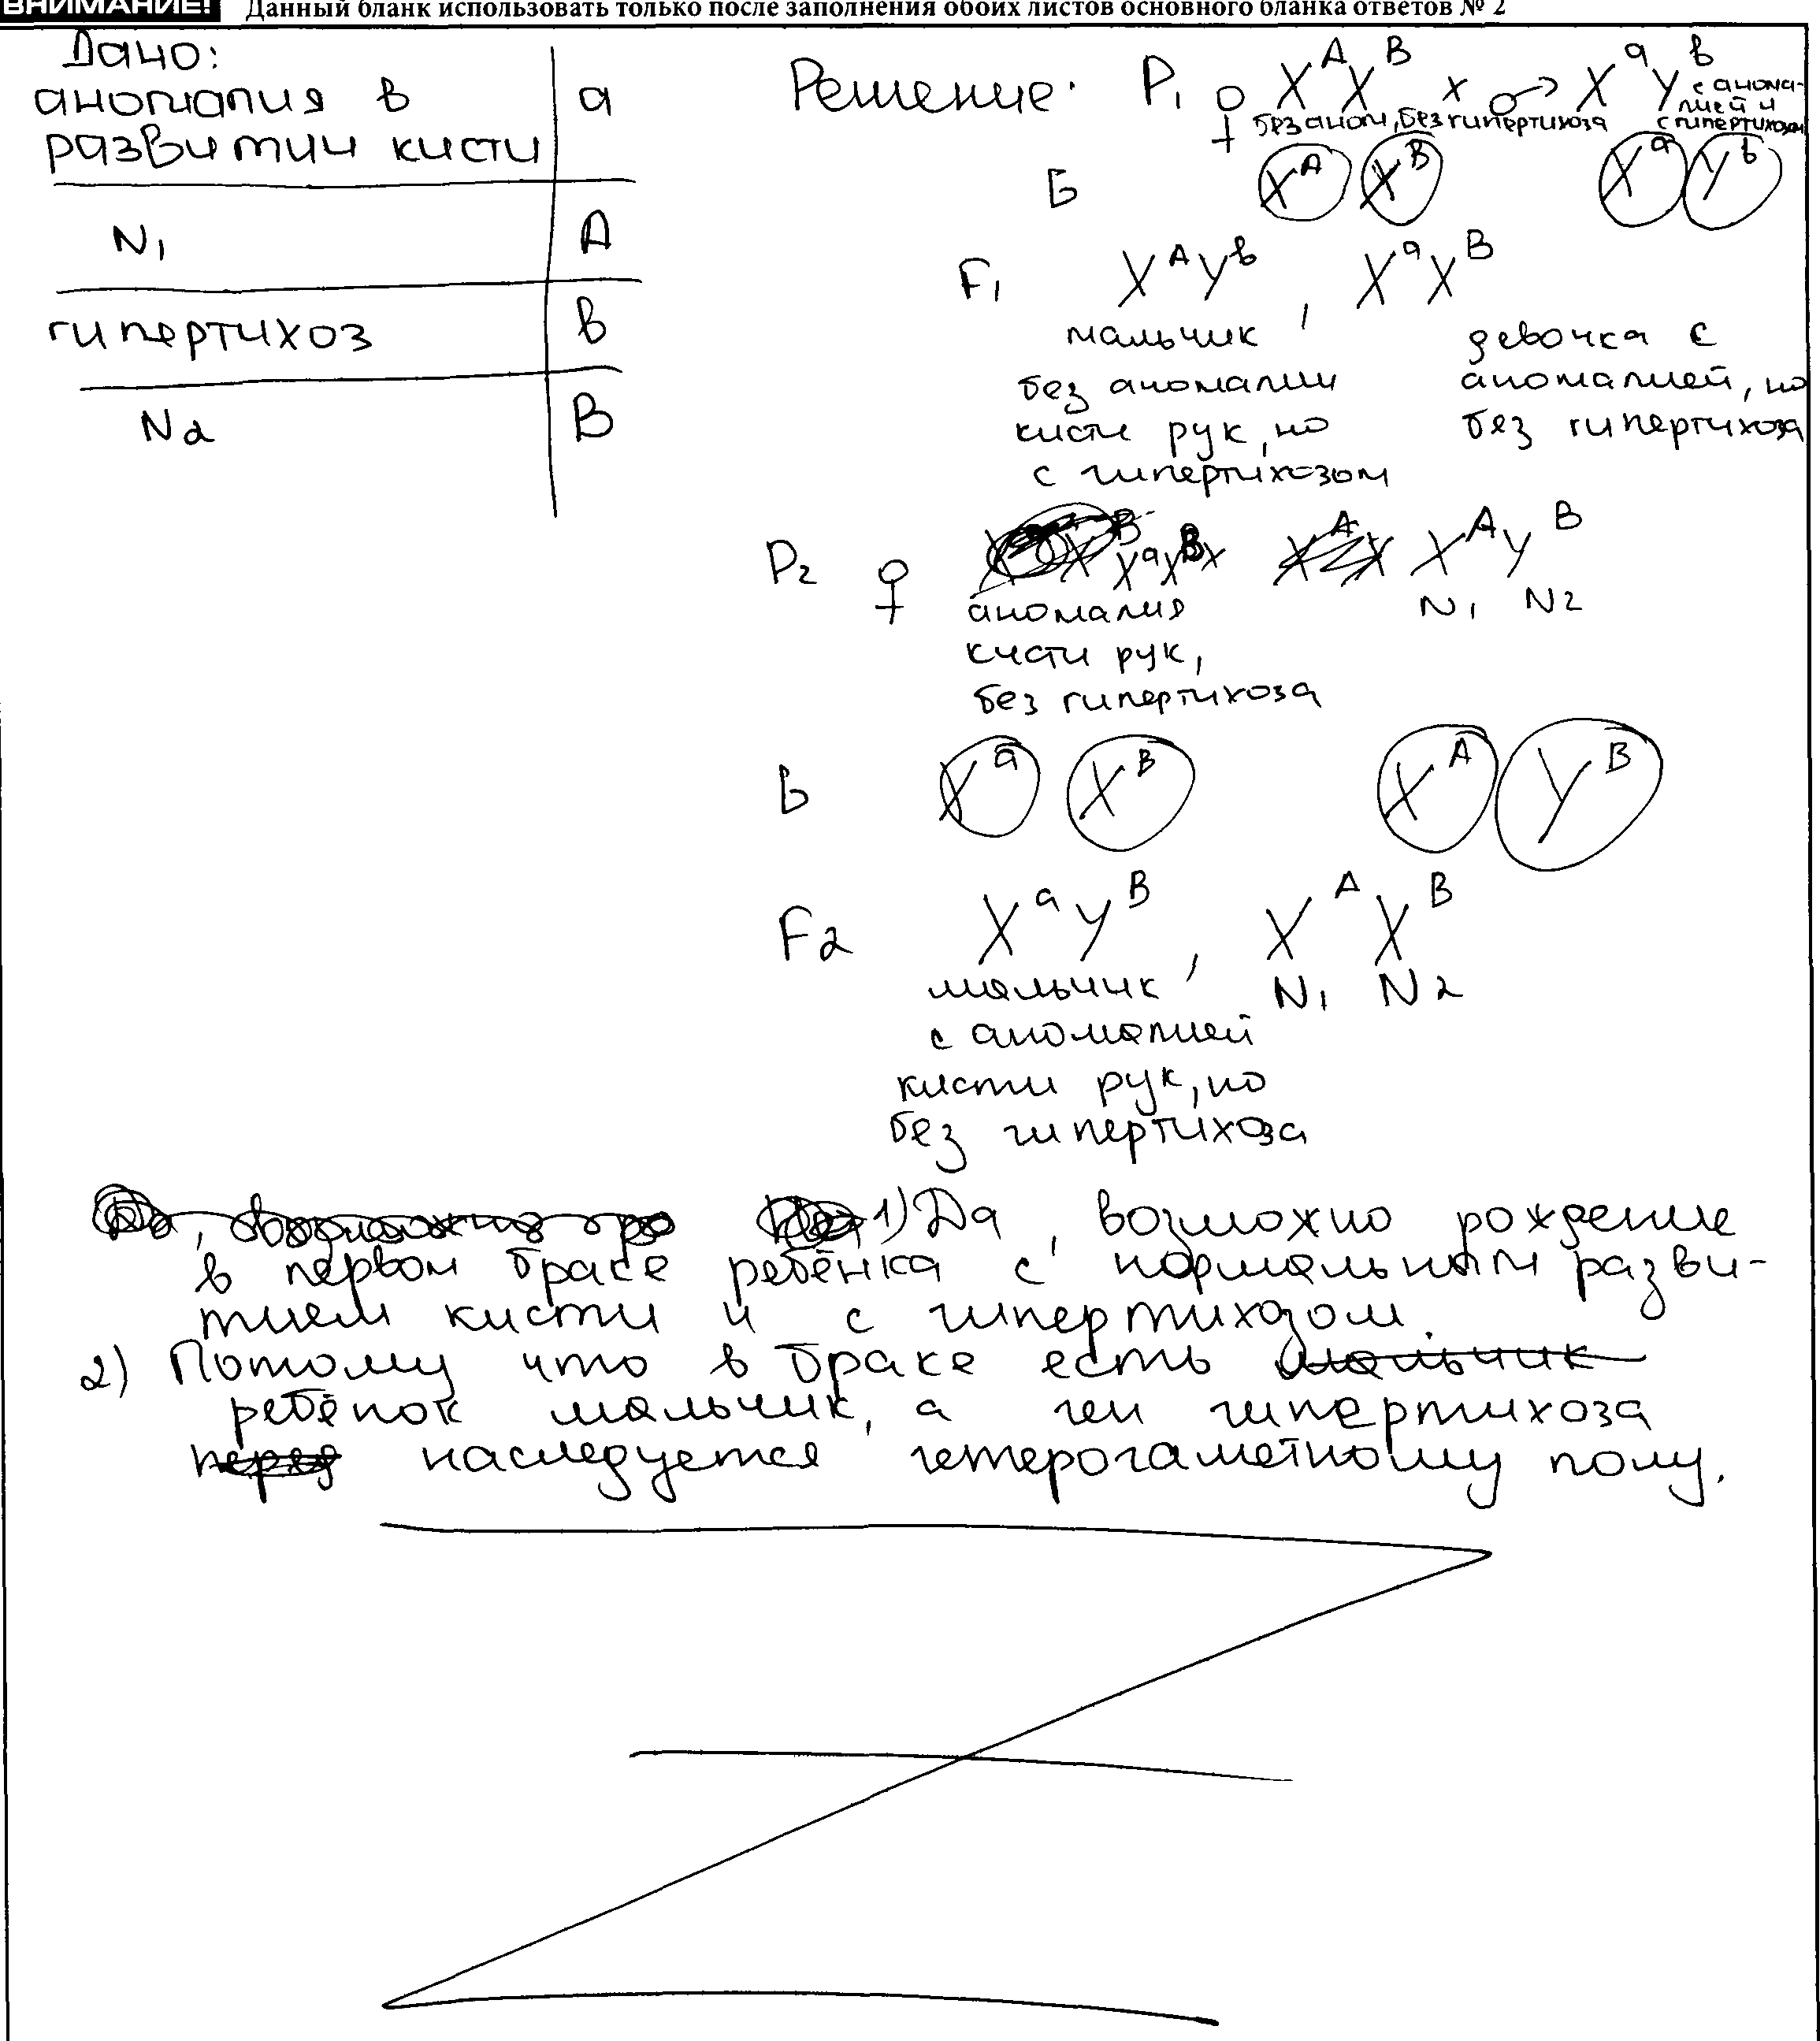 ВНИМАНИЕ! Данный бланк использовать только после заполнения обоих листов основного бланка ответов № 2
Дано:
аномалия в
развитии кисти a
N1 A
гипертихоз b
N2 B
Решение: P1 ♀ X^A X^B x ♂ X^a Y^b
без аном, без гипертихоза
с анома-
лией и
с гипертихозом
Б X^A X^B X^a Y^b
F1 X^A Y^b , X^a X^B
мальчик
без аномалии
кисти рук, но
с гипертихозом
девочка с
аномалией, но
без гипертихоза
P2 ♀ X^a X^B x X^A Y^B
N1 N2
аномалия
кисти рук,
без гипертихоза
Б X^a X^B X^A Y^B
F2 X^a Y^B , X^A X^B
мальчик N1 N2
с аномалией
кисти рук, но
без гипертихоза
1) Да, возможно рождение
в первом браке ребёнка с нормальным разви-
тием кисти и с гипертихозом.
2) Потому что в браке есть мальчик
ребёнок мальчик, а ген гипертихоза
наследуется гетерогаметному полу.